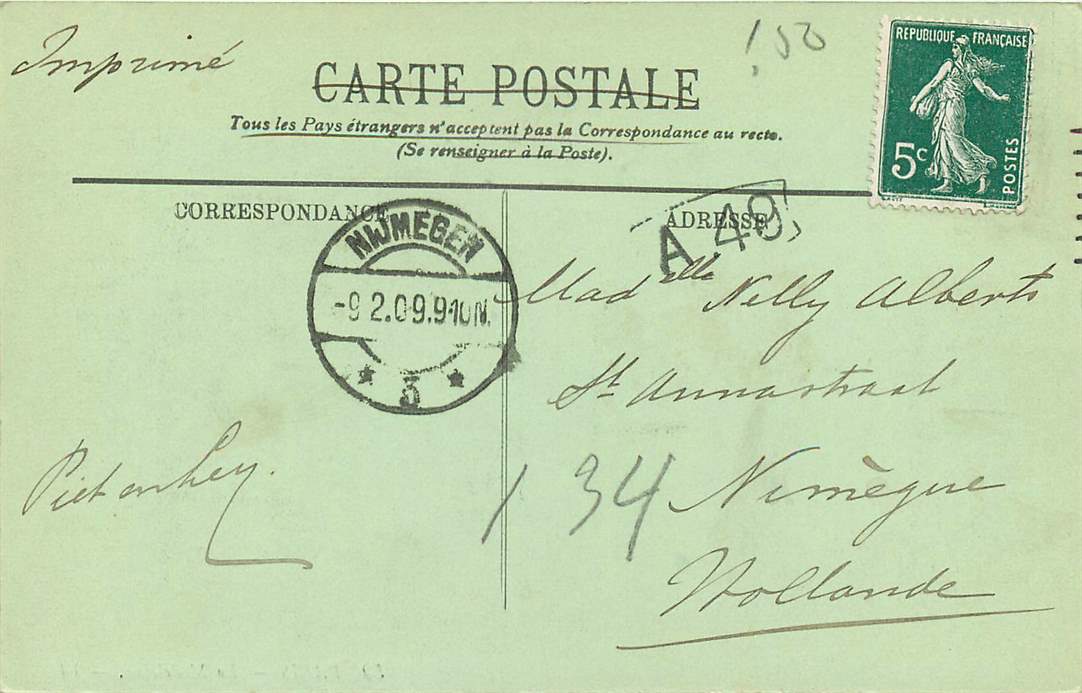 Imprimé
150
CARTE POSTALE
Tous les Pays étrangers n'acceptent pas la Correspondance au recto.
(Se renseigner à la Poste).
REPUBLIQUE FRANÇAISE
5c
POSTES
CORRESPONDANCE
ADRESSE
NIJMEGEN
-9 2.09.9-10N.
* 3 *
A 49
Madelle Nelly Alberts
St Annastraat
134
Nimègue
Hollande
Piet en